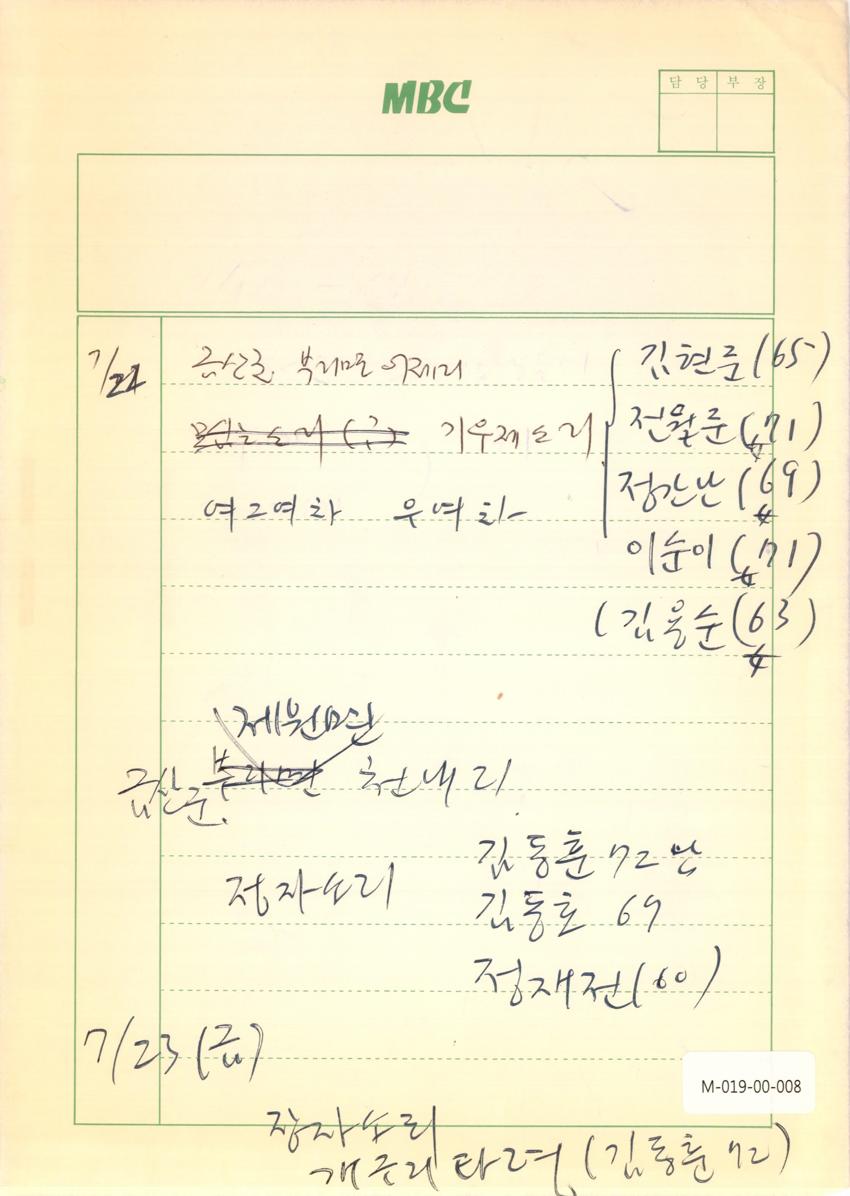 MBC
담 당 부 장
7/22 금산군 부리면 어재리 김현준(65)
모심는소리(금) 기우제소리 전월순(71)
정간난(69)
여그여차 우여차
이순이(71)
(김용순(63)
제원면
금산군 부리면 천내리
김동훈 72만
장자소리
김동호 69
정재전(60)
7/23(금)
장자소리
개구리타령(김동훈 72)
M-019-00-008